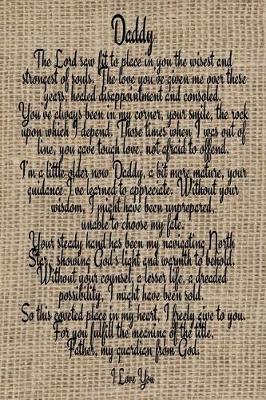 Daddy
The Lord saw fit to place in you the wisest and
strongest of souls. The love you've given me over these
years, healed disappointment and consoled.
You've always been in my corner, your smile, the rock
upon which I depend. Those times when I was out of
line, you gave tough love, not afraid to offend.
I'm a little older now Daddy, a bit more mature, your
guidance I've learned to appreciate. Without your
wisdom, I might have been unprepared,
unable to choose my fate.
Your steady hand has been my navigating North
Star, showing God's light and warmth to behold.
Without your counsel, a lesser life, a dreaded
possibility, I might have been sold.
So this coveted place in my heart, I freely give to you.
For you fulfill the meaning of the title,
Father, my guardian from God.
I Love You